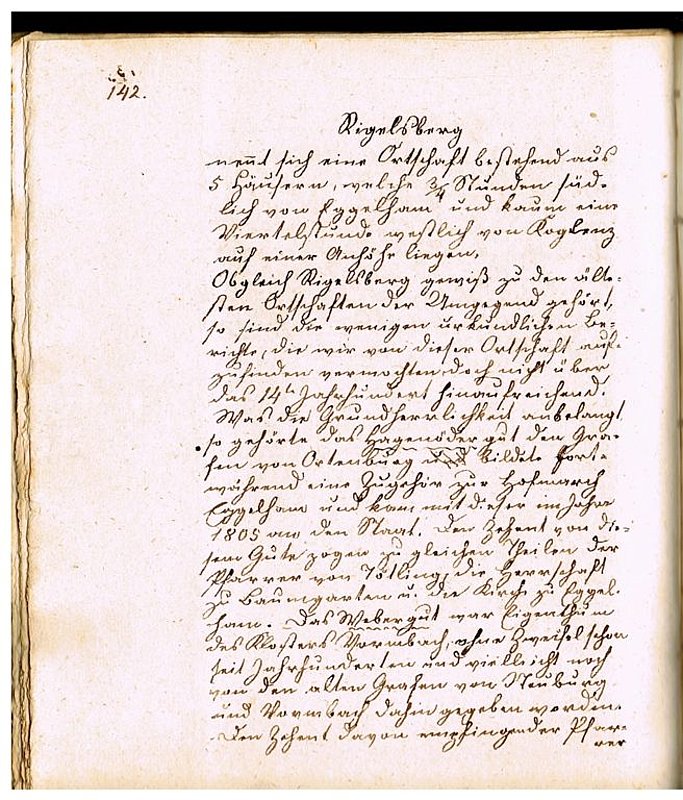 142.
Rigelsberg
nennt sich eine Ortschaft bestehend aus
5 Häusern, welche 3/4 Stunden süd-
lich von Eggelham und kaum eine
Viertelstunde westlich von
auf einer Anhöhe liegen.
Obgleich Rigelsberg gewiß zu den älte-
sten Ortschaften der Umgegend gehört,
so sind die wenigen urkundlichen Be-
richte, die wir von dieser Ortschaft auf-
zufinden vermochten doch nicht über
das 14te Jahrhundert hinaufreichend.
Was die Grundherrlichkeit anbelangt
so gehörte das Hagenödergut den Gra-
fen von Ortenburg und bildete fort-
während eine Zugehör zur Hofmarch
Eggelham und kam mit dieser im Jahre
1805 an den Staat. Den Zehent von die-
sem Gute zogen zu gleichen Theilen der
Pfarrer von die Herrschaft
zu Baumgarten u. die Kirche zu Eggel-
ham. Das Webergut war Eigenthum
des Klosters Vormbach, ohne Zweifel schon
seit Jahrhunderten und vielleicht noch
von den alten Grafen von Neuburg
und Vormbach dahin gegeben worden.
Den Zehent davon empfing der Pfar-
rer